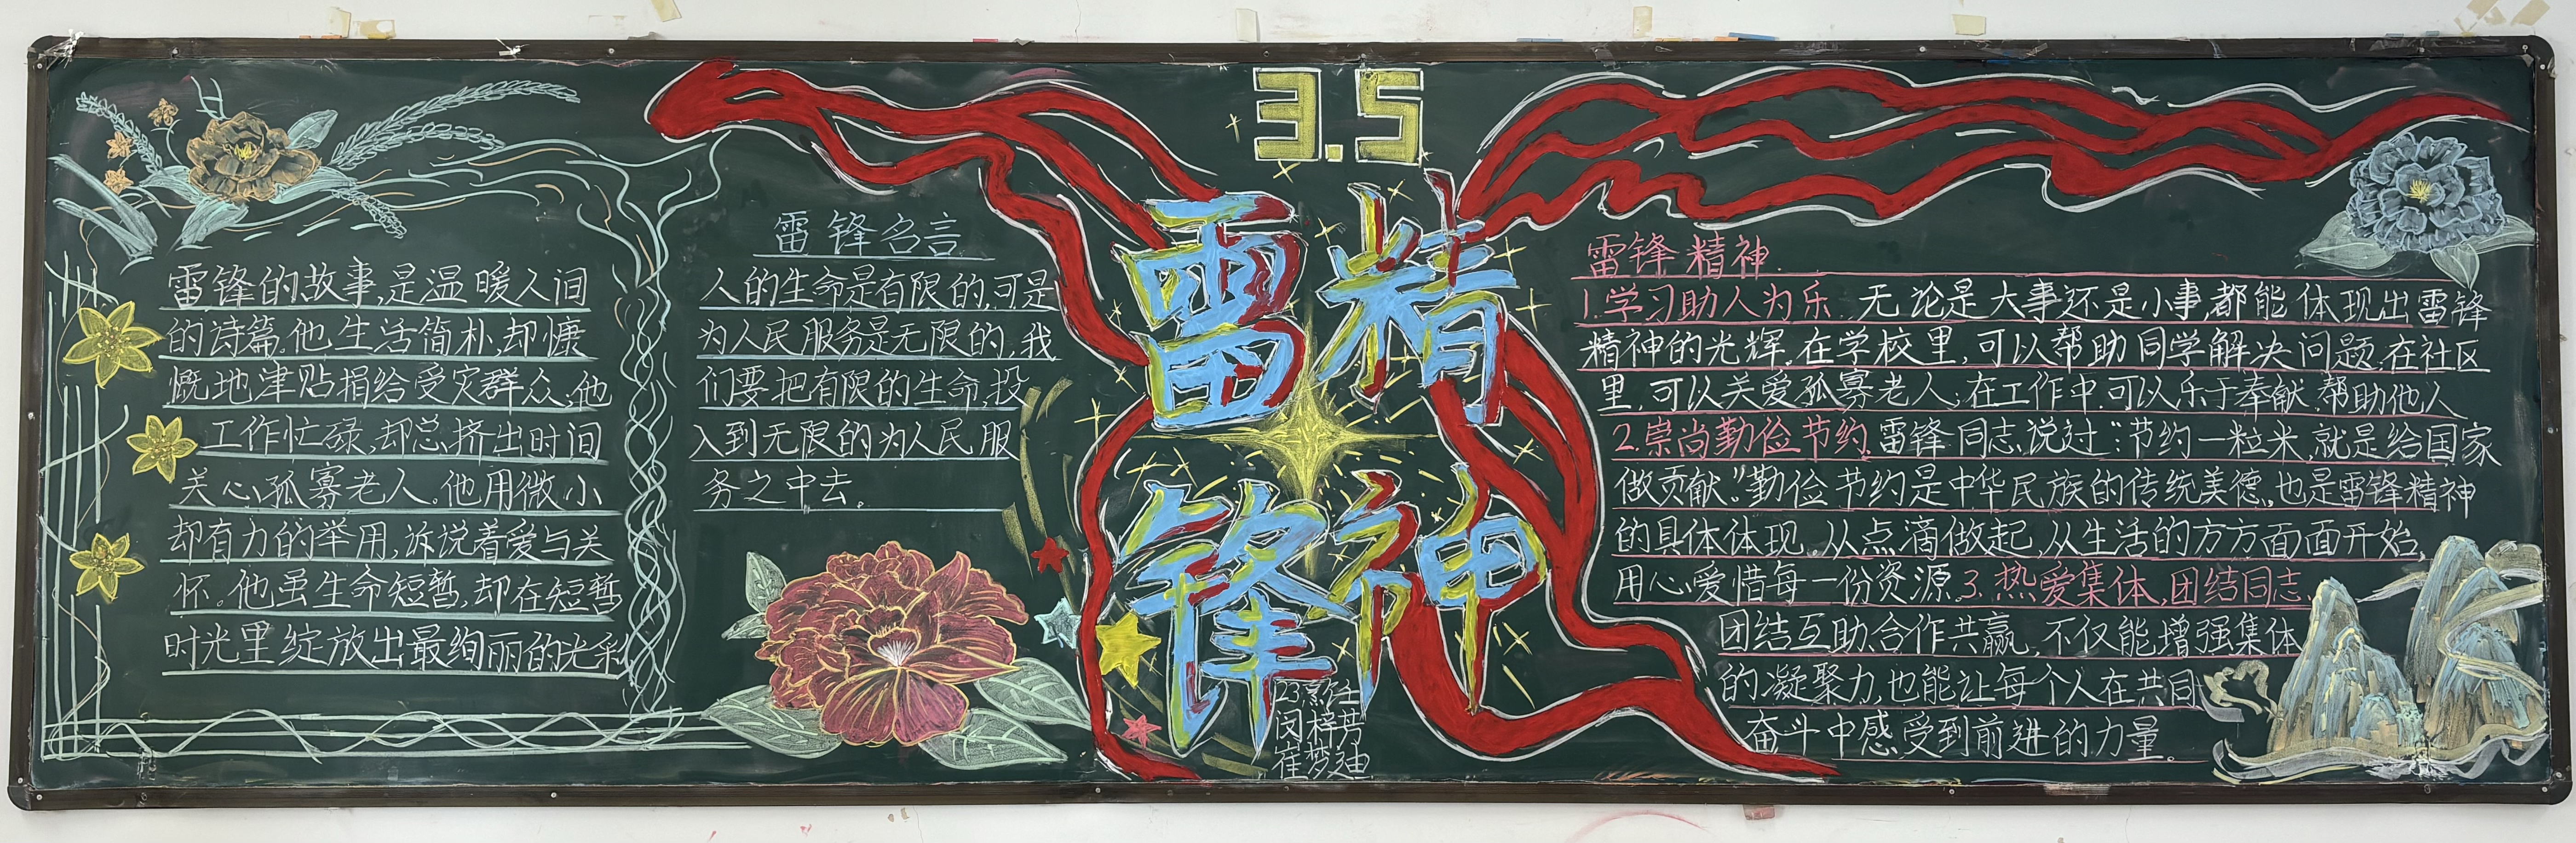 3.5
雷锋精神
雷锋的故事,是温暖人间
的诗篇。他生活简朴,却慷
慨地津贴捐给受灾群众;他
工作忙碌,却总挤出时间
关心孤寡老人。他用微小
却有力的举用,诉说着爱与关
怀。他虽生命短暂,却在短暂
时光里绽放出最绚丽的光彩
雷锋名言
人的生命是有限的,可是
为人民服务是无限的,我
们要把有限的生命,投
入到无限的为人民服
务之中去。
雷锋精神
1.学习助人为乐。无论是大事还是小事,都能体现出雷锋
精神的光辉。在学校里,可以帮助同学解决问题;在社区
里,可以关爱孤寡老人;在工作中,可以乐于奉献,帮助他人
2.崇尚勤俭节约。雷锋同志说过:“节约一粒米,就是给国家
做贡献。”勤俭节约是中华民族的传统美德,也是雷锋精神
的具体体现。从点滴做起,从生活的方方面面开始,
用心爱惜每一份资源。3.热爱集体,团结同志。
团结互助、合作共赢,不仅能增强集体
的凝聚力,也能让每个人在共同
奋斗中感受到前进的力量。
闵梓芮
崔梦迪